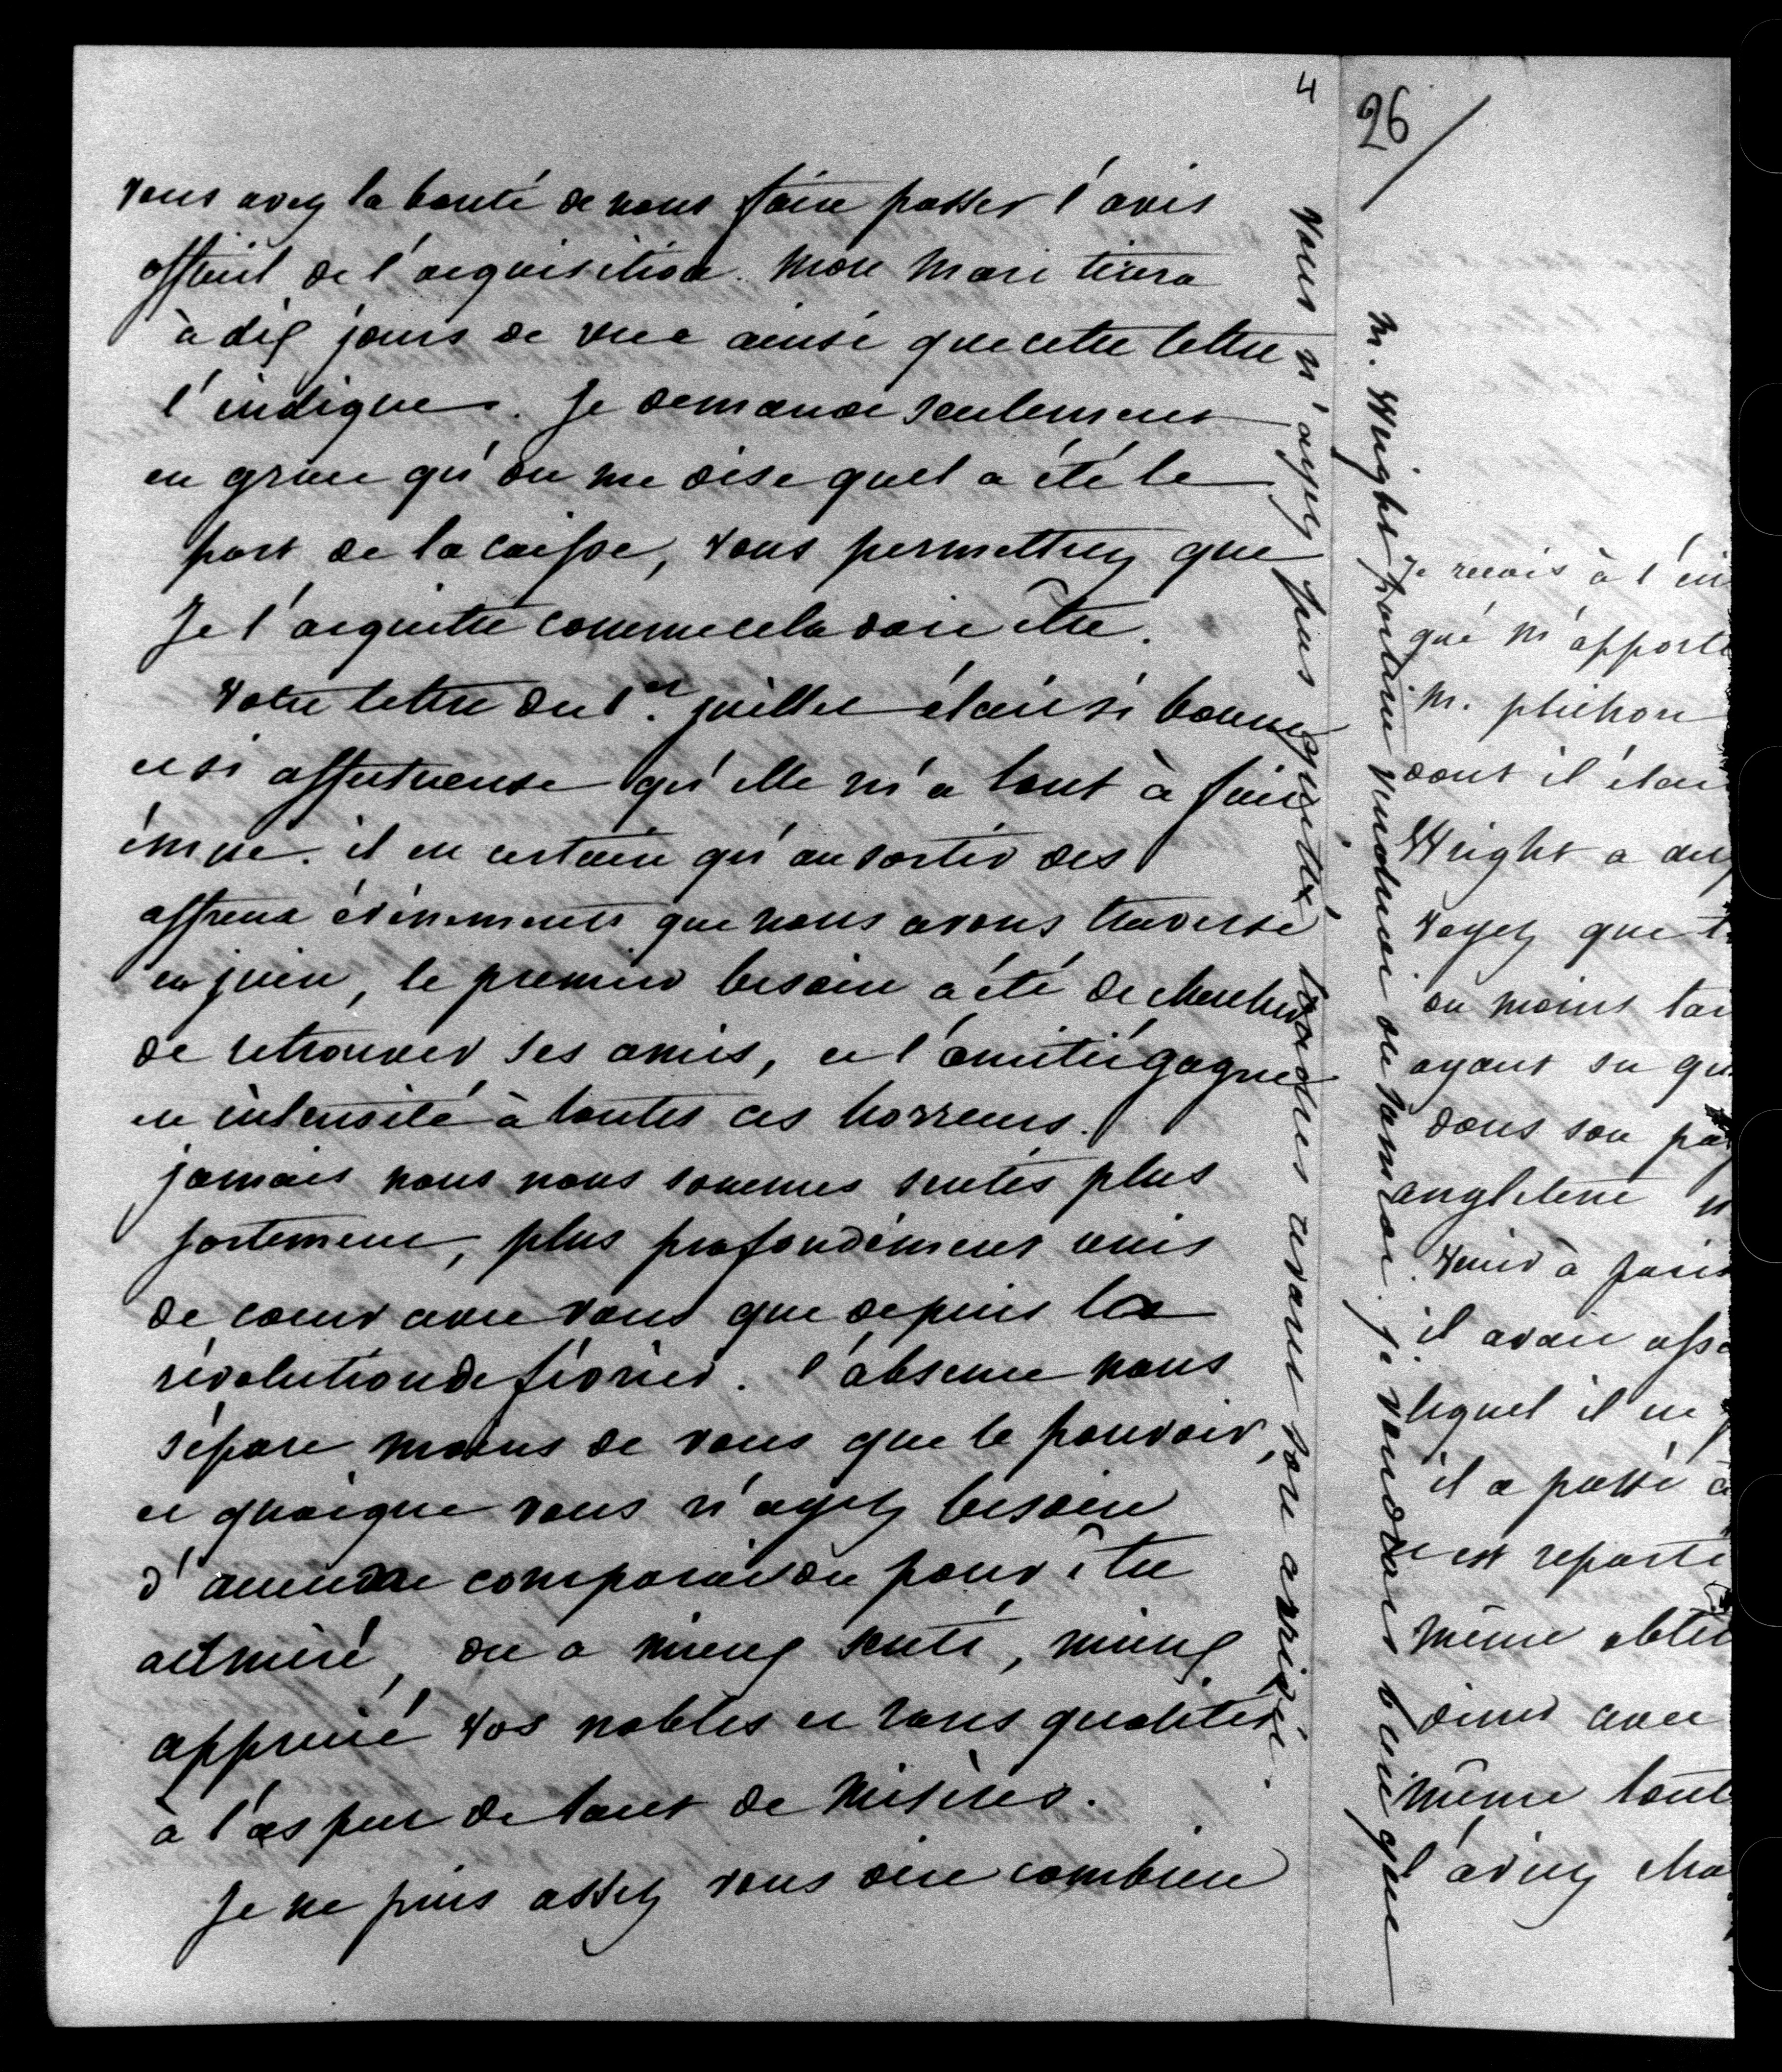 4
vous avez la bonté de nous faire passer l'avis
officiel de l'acquisition. mon mari tirera
à dix jours de vue ainsi que cette lettre
l'indique. Je demande seulement
en grace qu'on me dise quel a été le
port de la caisse, vous permettrez que
Je l'acquitte comme cela doit être.
Votre lettre du 1er. juillet était si bonne
et si affectueuse qu'elle m'a tout à fait
émue. il est certain qu'au sortir des
affreux évènements que nous avons traversé
en juin, le premier besoin a été de chercher
de retrouver ses amis, et l'amitié gagne
en intensité à toutes ces horreurs.
jamais nous nous sommes sentis plus
fortement, plus profondément unis
de coeur avec vous que depuis la
révolution de février. l'absence nous
sépare moins de vous que le pouvoir,
et quoique vous n'ayez besoin
d'aucune comparaison pour être
admiré, on a mieux senti, mieux
apprécié vos nobles et rares qualités
à l'aspect de tant de misères.
Je ne puis assez vous dire combien
M. Wright portait vendredi ou samedi. je voudrais bien que
vous n'ayez pas quitté Londres avant son arrivée.
26/
Je reçois à l'in
qué m'apporte
M. plichon
dont il étai
Wright a du
voyez que t
ou moins tar
ayant su qu
dans son pa
angleterre n
venir à paris
il avait ass
lequel il en
il a passé à
et est reparti
même obte
diner avec
même tout
l'aviez cha